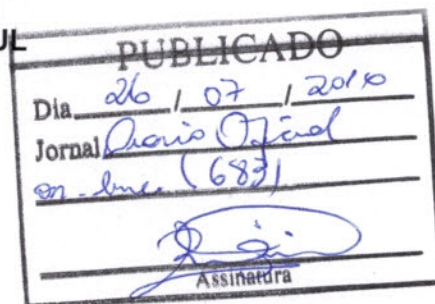 UL
PUBLICADO
Dia 26 / 07 / 2010
Jornal Diario Oficial
on-line (683)
Assinatura